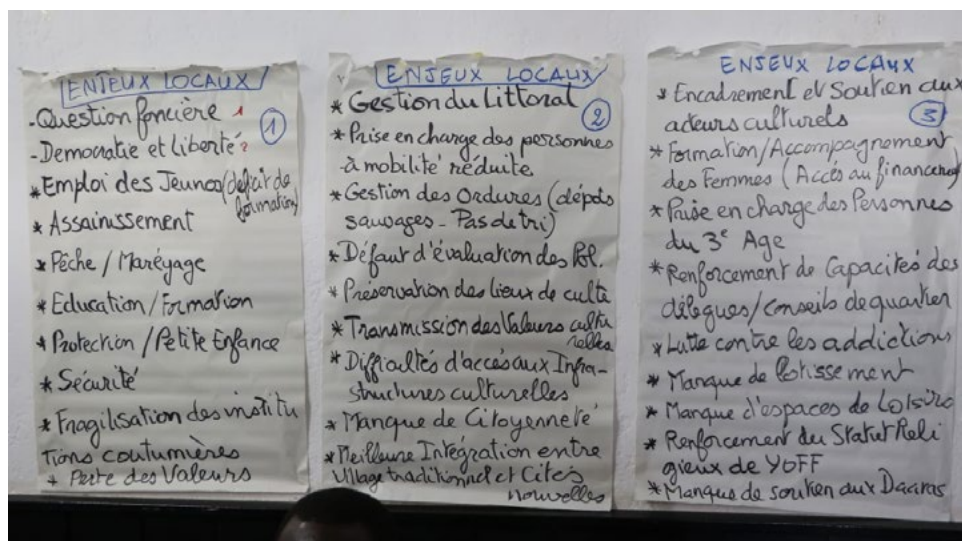 ENJEUX LOCAUX
1
-Question foncière 1
-Democratie et liberté 2
* Emploi des Jeunes (deficit de
formation)
* Assainissement
* Pêche / Maréyage
* Education / Formation
* Protection / Petite Enfance
* Sécurité
* Fragilisation des institu
tions coutumières
* Perte des Valeurs
ENJEUX LOCAUX
2
* Gestion du Littoral
* Prise en charge des personnes
à mobilité réduite
* Gestion des Ordures (dépôts
sauvages - Pas de tri)
* Défaut d'évaluation des Pol.
* Préservation des lieux de culte
* Transmission des Valeurs cultu
relles
* Difficultés d'accès aux Infra-
structures culturelles
* Manque de Citoyenneté
* Meilleure Intégration entre
Village traditionnel et Cités
nouvelles
ENJEUX LOCAUX
* Encadrement et Soutien aux
acteurs culturels
3
* Formation/Accompagnement
des Femmes (Accés au financement)
* Prise en charge des Personnes
du 3e Age
* Renforcement de Capacités des
délegues/Conseils de quartier
* Lutte contre les addictions
* Manque de lotissement
* Manque d'espaces de Loisirs
* Renforcement du Statut Reli
gieux de YOFF
* Manque de soutien aux Daaras